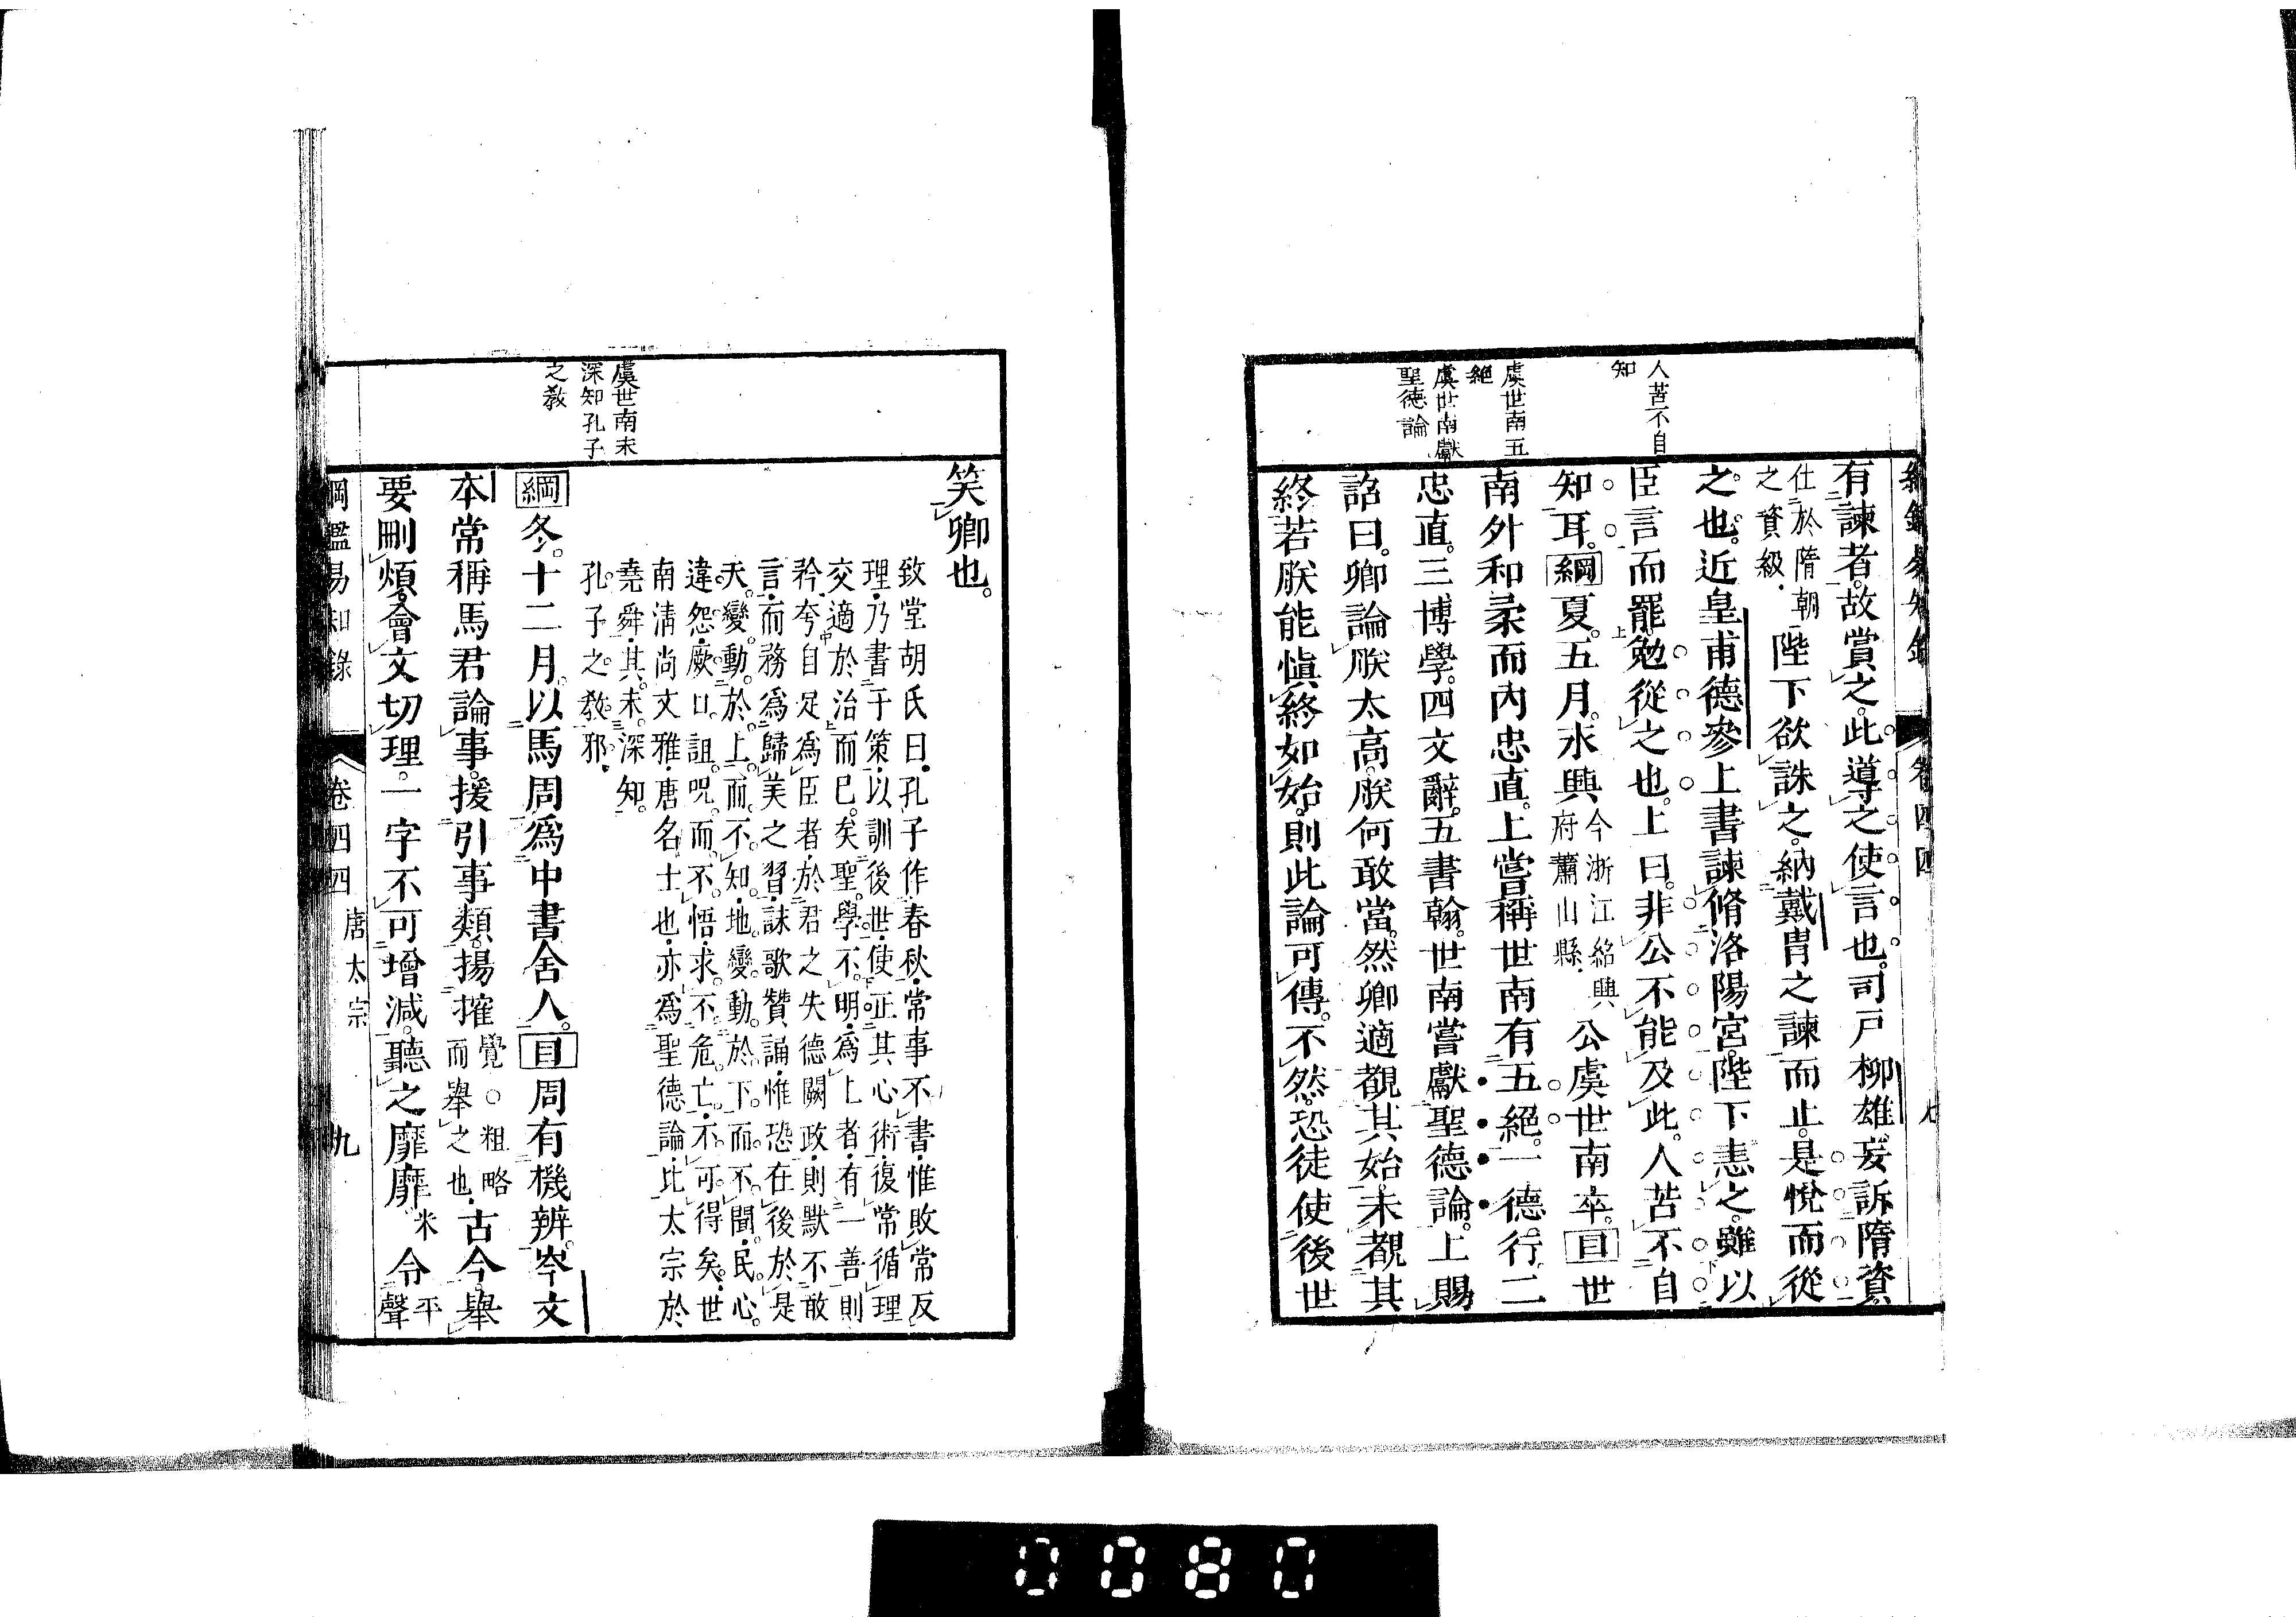 人苦不自
知
虞世南五
絕
虞世南獻
聖德論
有諫者。故賞之。此導之使言也。司戶柳雄妄訴隋資
仕於隋朝
之資級
陛下欲誅之。納戴胄之諫而止。是悅而從
之也。近皇甫德參上書諫脩洛陽宮。陛下恚之。雖以
臣言而罷。勉從之也。上曰。非公不能及此。人苦不自
知耳。綱夏。五月。永興
今浙江紹興
府蕭山縣
公虞世南卒。目世
南外和柔而內忠直。上嘗稱世南有五絕。一德行。二
忠直。三博學。四文辭。五書翰。世南嘗獻聖德論。上賜
詔曰。卿論朕太高。朕何敢當。然卿適覩其始。未覩其
終。若朕能愼終如始。則此論可傳。不然。恐徒使後世
虞世南未
深知孔子
之敎
笑卿也。
致堂胡氏曰。孔子作春秋。常事不書。惟敗常反
理。乃書于策。以訓後世。使正其心術。復常循理。
交適於治而已矣。聖學不明。爲上者。有一善則
矜夸自足。爲臣者。於君之失德闕政。則默不敢
言。而務爲歸美之習。詠歌贊誦。惟恐在後。於是
天變動於上。而不知。地變動於下。而不聞。民心
違怨。厥口詛呪。而不悟。求不危亡。不可得矣。世
南淸尚文雅。唐名士也。亦爲聖德論。比太宗於
堯舜。其未深知
孔子之敎邪。
綱冬。十二月。以馬周爲中書舍人。目周有機辨。岑文
本常稱馬君論事。援引事類。揚搉
覺。○粗略
而舉之也
古今。舉
要刪煩。會文切理。一字不可增減。聽之靡靡
米
令
平
聲
綱鑑易知錄
卷四四
唐太宗
九